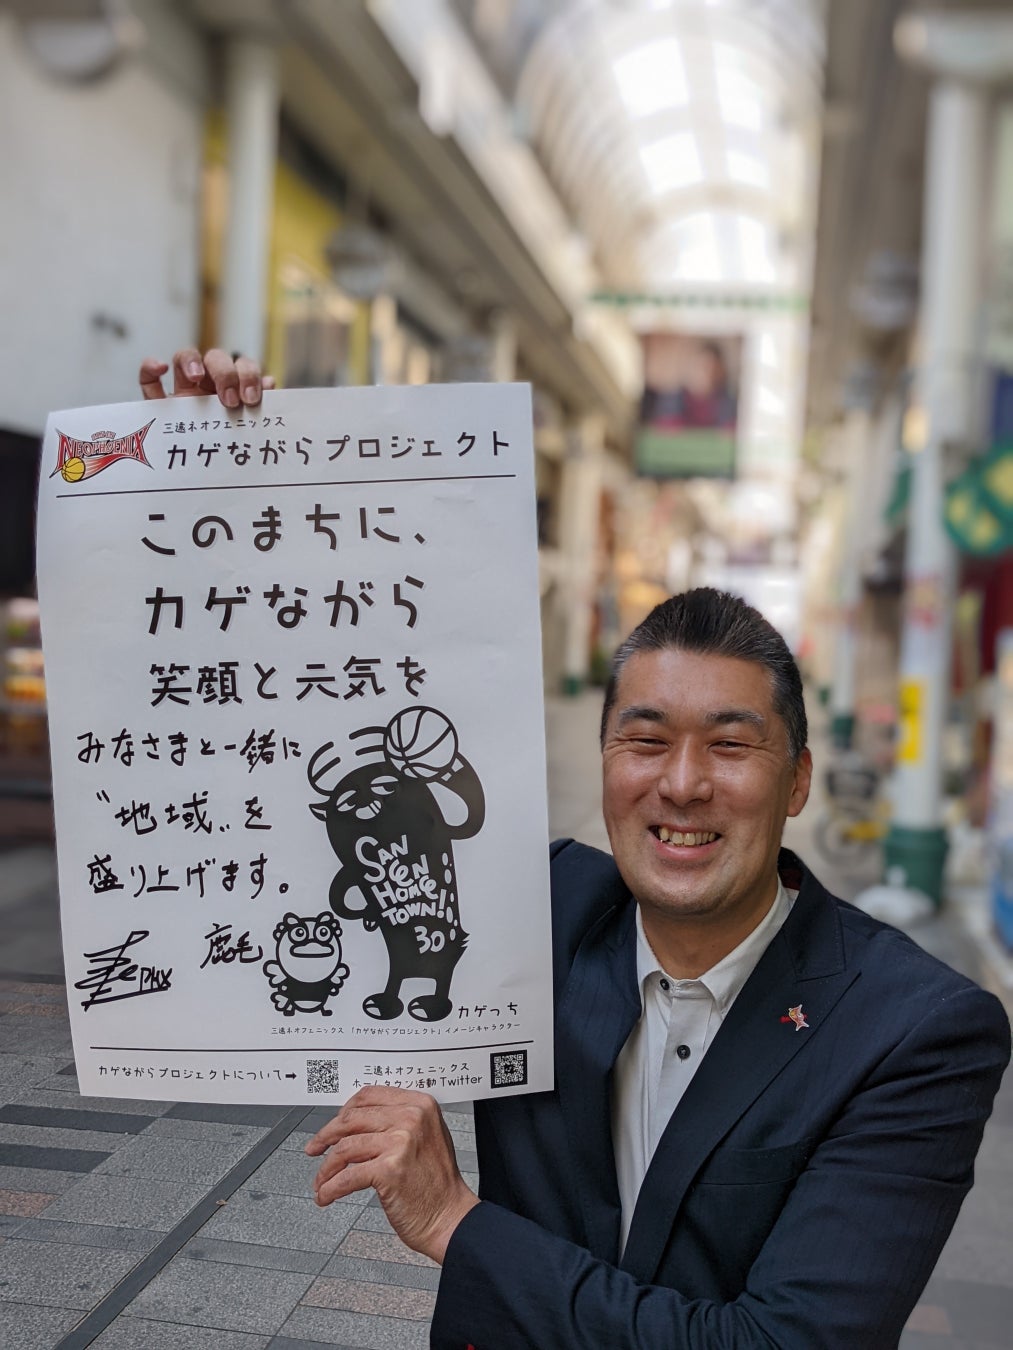 三遠ネオフェニックス
NEOPHOENIX
カゲながらプロジェクト
このまちに、
カゲながら
笑顔と元気を
みなさまと一緒に
〝地域〟を
盛り上げます。
鹿毛
PHX
SAN
EN
HOME
TOWN!
30
カゲっち
三遠ネオフェニックス 「カゲながらプロジェクト」イメージキャラクター
カゲながらプロジェクトについて→
三遠ネオフェニックス
ホームタウン活動 Twitter